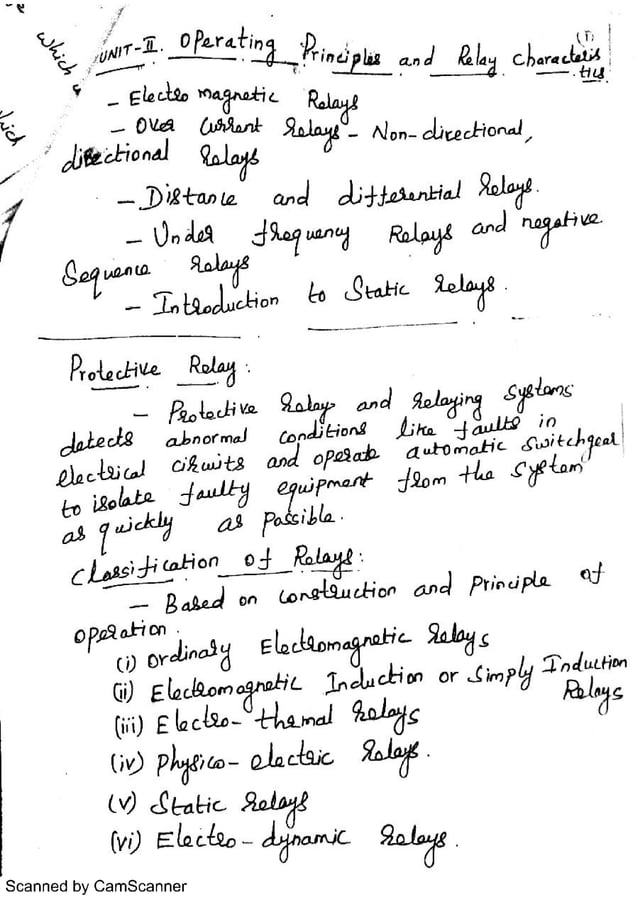 which
(1)
UNIT-II. Operating Principles and Relay Characteris
tics
- Electro magnetic Relays
- Over Current Relays - Non-directional,
directional Relays
- Distance and differential Relays.
- Under frequency Relays and negative
Sequence Relays
- Introduction to Static Relays.
Protective Relay:
- Protective Relay and relaying systems
detects abnormal conditions like faults in
electrical circuits and operate automatic switchgear
to isolate faulty equipment from the system
as quickly as possible.
Classification of Relays:
- Based on construction and Principle of
operation.
(i) Ordinary Electromagnetic Relays
(ii) Electromagnetic Induction or Simply Induction
Relays
(iii) Electro-thermal Relays
(iv) Physico-electric Relays.
(v) Static Relays
(vi) Electro-dynamic Relays.
Scanned by CamScanner